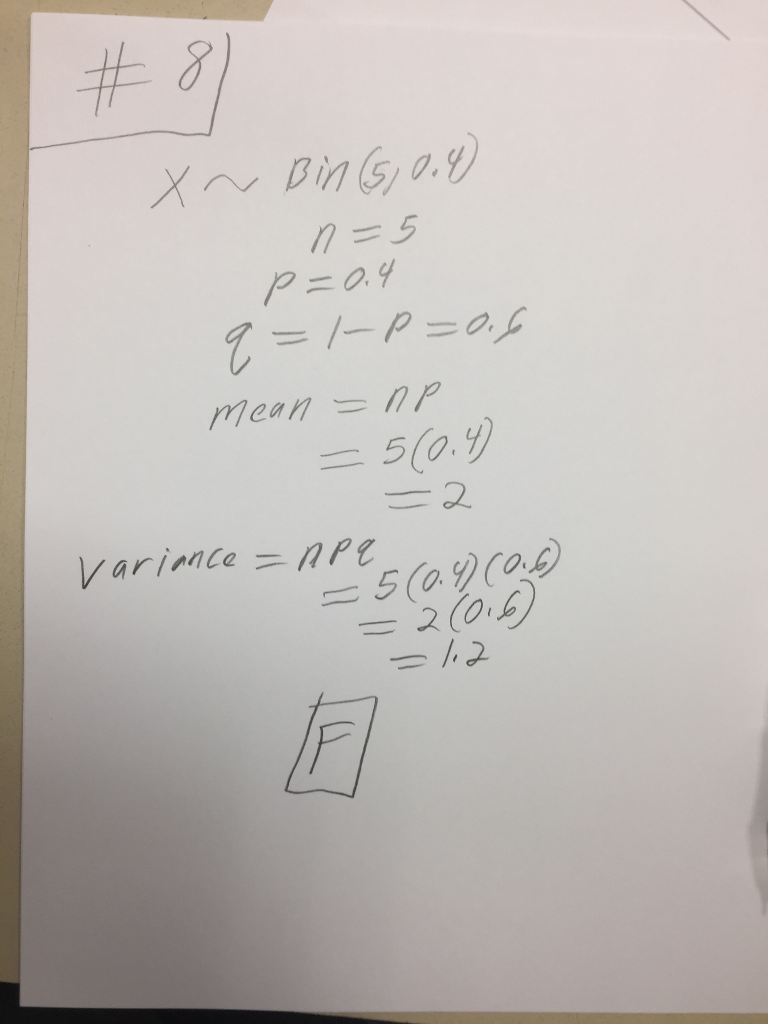 # 8
X ~ Bin(5, 0.4)
n = 5
p = 0.4
q = 1 - P = 0.6
mean = np
= 5(0.4)
= 2
Variance = npq
= 5(0.4)(0.6)
= 2(0.6)
= 1.2
F